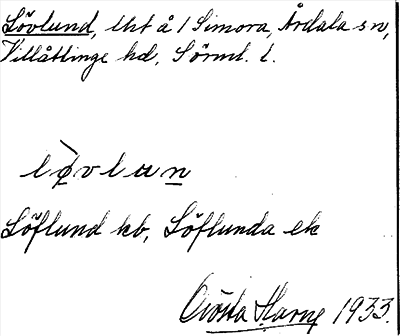 Lövlund, lht å 1 Simora, Årdala sn,
Villåttinge hd, Sörml. l.
lǿvlun
Löflund kb, Löflunda ek
Gösta Harne 1933.